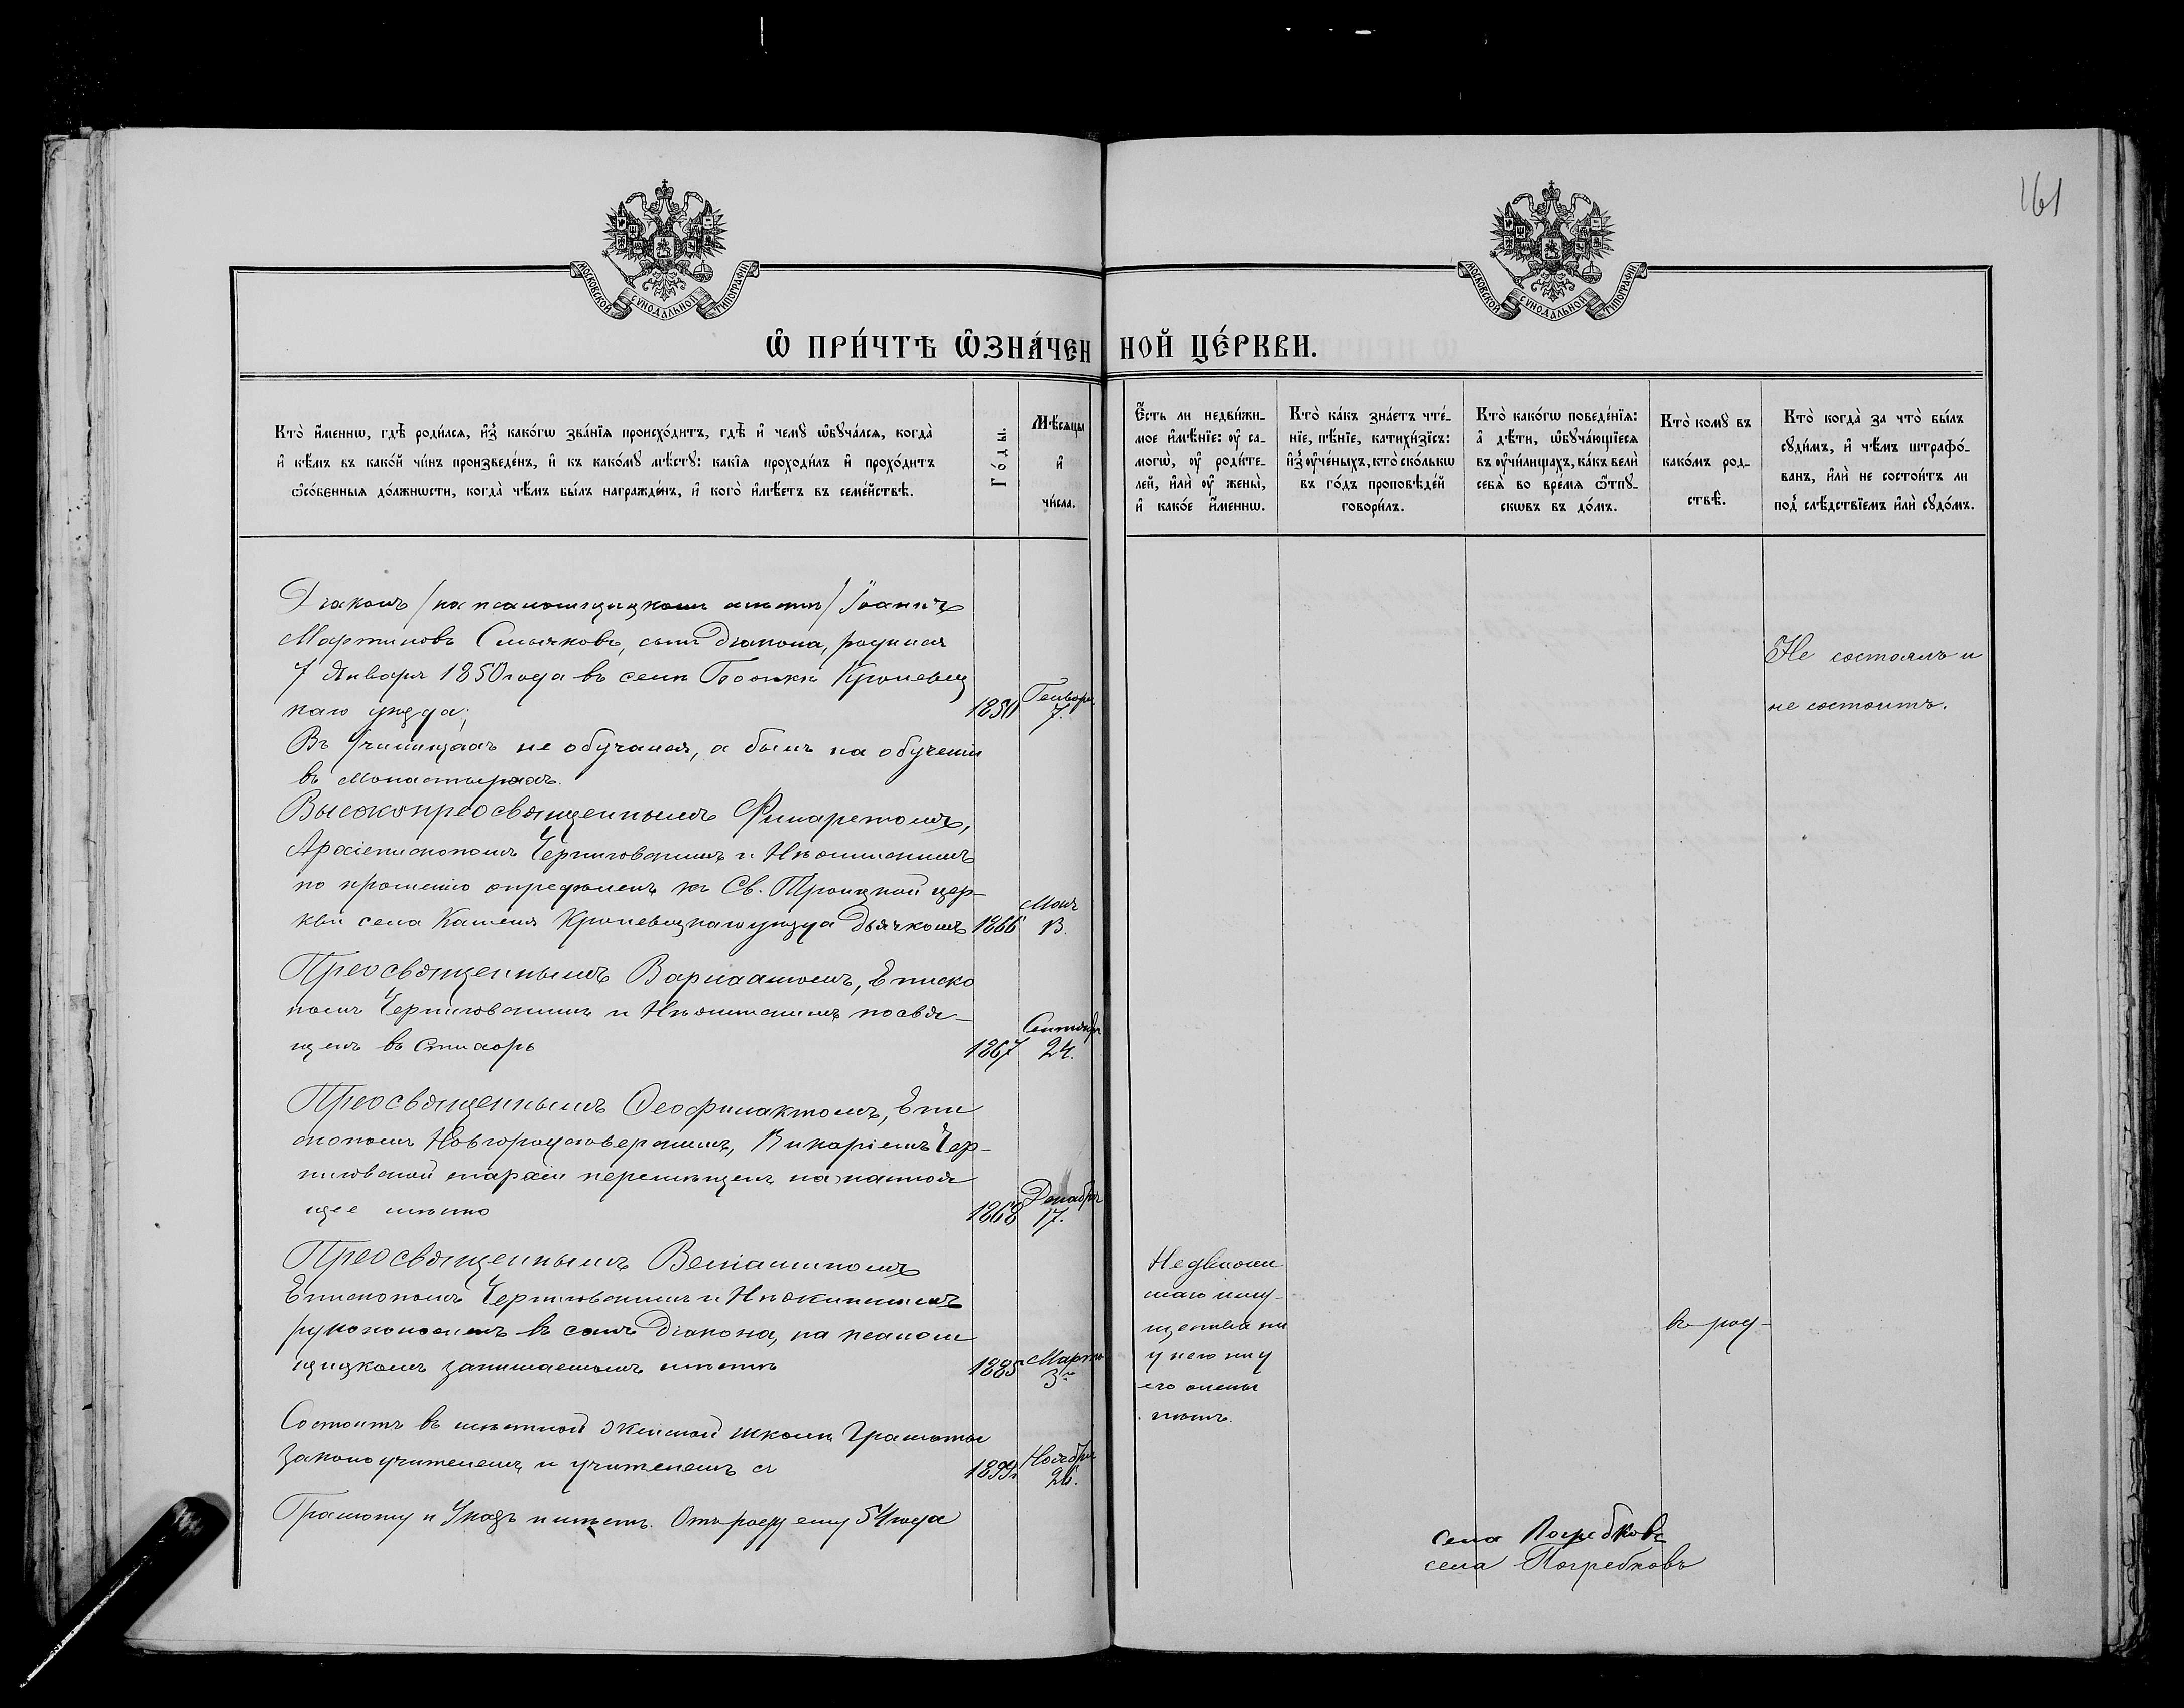 161
МОСКОВСКОЙ СѴНОДАЛЬНОЙ ТИПОГРАФІИ
МОСКОВСКОЙ СѴНОДАЛЬНОЙ ТИПОГРАФІИ
Ѡ ПРИ́ЧТѢ ѠЗНА́ЧЕННОЙ ЦЕ́РКВИ.
Кто̀ и҆́меннѡ, гдѣ̀ роди́лся, и҆з̾ како́гѡ зва́нїѧ происхо́дитъ, гдѣ̀ и҆ чемꙋ̀ ѡ҆бꙋча́лся, когда̀
и҆ кѣ́мъ въ како́й чи́нъ произведе́нъ, и҆ къ како́мꙋ мѣ́стꙋ: какі̑ѧ проходи́лъ и҆ прохо́дитъ
ѻ҆со́бенныѧ до́лжнѡсти, когда̀ чѣ́мъ бы́лъ награжде́нъ, и҆ кого̀ и҆мѣ́етъ въ семе́йствѣ.
Го́ды.
Мѣ́сяцы
и҆
чи́сла.
Є҆́сть ли недви́жи-
мое и҆мѣ́нїе: ᲂу҆ са-
могѡ̀, ᲂу҆ роди́те-
лей, и҆лѝ ᲂу҆ жены̀,
и҆ како́е и҆́меннѡ.
Кто̀ ка́къ зна́етъ чте́-
нїе, пѣ́нїе, катихи́зїсъ:
и҆з̾ ᲂу҆че́ныхъ, кто̀ ско́лькѡ
въ го́дъ проповѣ́дей
говори́лъ.
Кто̀ како́гѡ поведе́нїѧ:
а҆ дѣ́ти, ѡ҆бꙋча́ющїесѧ
въ ᲂу҆чи́лищахъ, ка́къ велѝ
себѧ̀ во вре́мѧ ѿпꙋ-
скѡвъ въ до́мъ.
Кто̀ комꙋ̀ въ
како́мъ род-
ствѣ̀.
Кто̀ когда̀ за что̀ бы́лъ
сꙋди́мъ, и҆ чѣ́мъ штрафо́-
ванъ, и҆лѝ не состои́тъ ли
под̾ слѣ́дствїемъ и҆лѝ сꙋдо́мъ.
Діаконъ /на псаломщицкомъ мѣстѣ/ Іоаннъ
Мартиновъ Смычковъ, сынъ Діакона, родился
7 Января 1850 года въ селѣ Кролевец
каго уѣзда; 1850 Генваря 7.
Въ Училищахъ не обучался, а былъ на обученіи
въ Монастыряхъ.
Высокопреосвященнымъ Филаретомъ,
Архіепископомъ Черниговскимъ и Нѣжинскимъ
по прошенію опредѣленъ къ Св. Троицкой цер-
кви села Каменя Кролевецкаго уѣзда Дьячкомъ 1866 Мая 13.
Преосвященнымъ Варлаамомъ, Еписко
помъ Черниговскимъ и Нѣжинскимъ посвя-
щенъ въ Стихарь 1867 Сентября 24.
Преосвященнымъ Ѳеофилактомъ, Епи
скопомъ Новгородсѣверскимъ, Викаріемъ Чер-
ниговской епархіи перемѣщенъ на настоя
щее мѣсто 1868 Декабря 17.
Преосвященнымъ Веніаминомъ
Епископомъ Черниговскимъ и Нѣжинскимъ
рукоположенъ въ санъ Діакона, на псалом
щицкомъ занимаемомъ мѣстѣ 1885 Марта 3го
Состоитъ въ мѣстной женской школѣ Грамоты
законоучителемъ и учителемъ съ 1899 Ноября 26.
Грамоту и Указъ имѣетъ. Отъ роду ему 54 года
Недвижи
маго иму-
щества ни
у него ни у
его жены
нѣтъ.
въ род-
Не состоялъ и
не состоитъ.
села Погребковъ
села Погребковъ